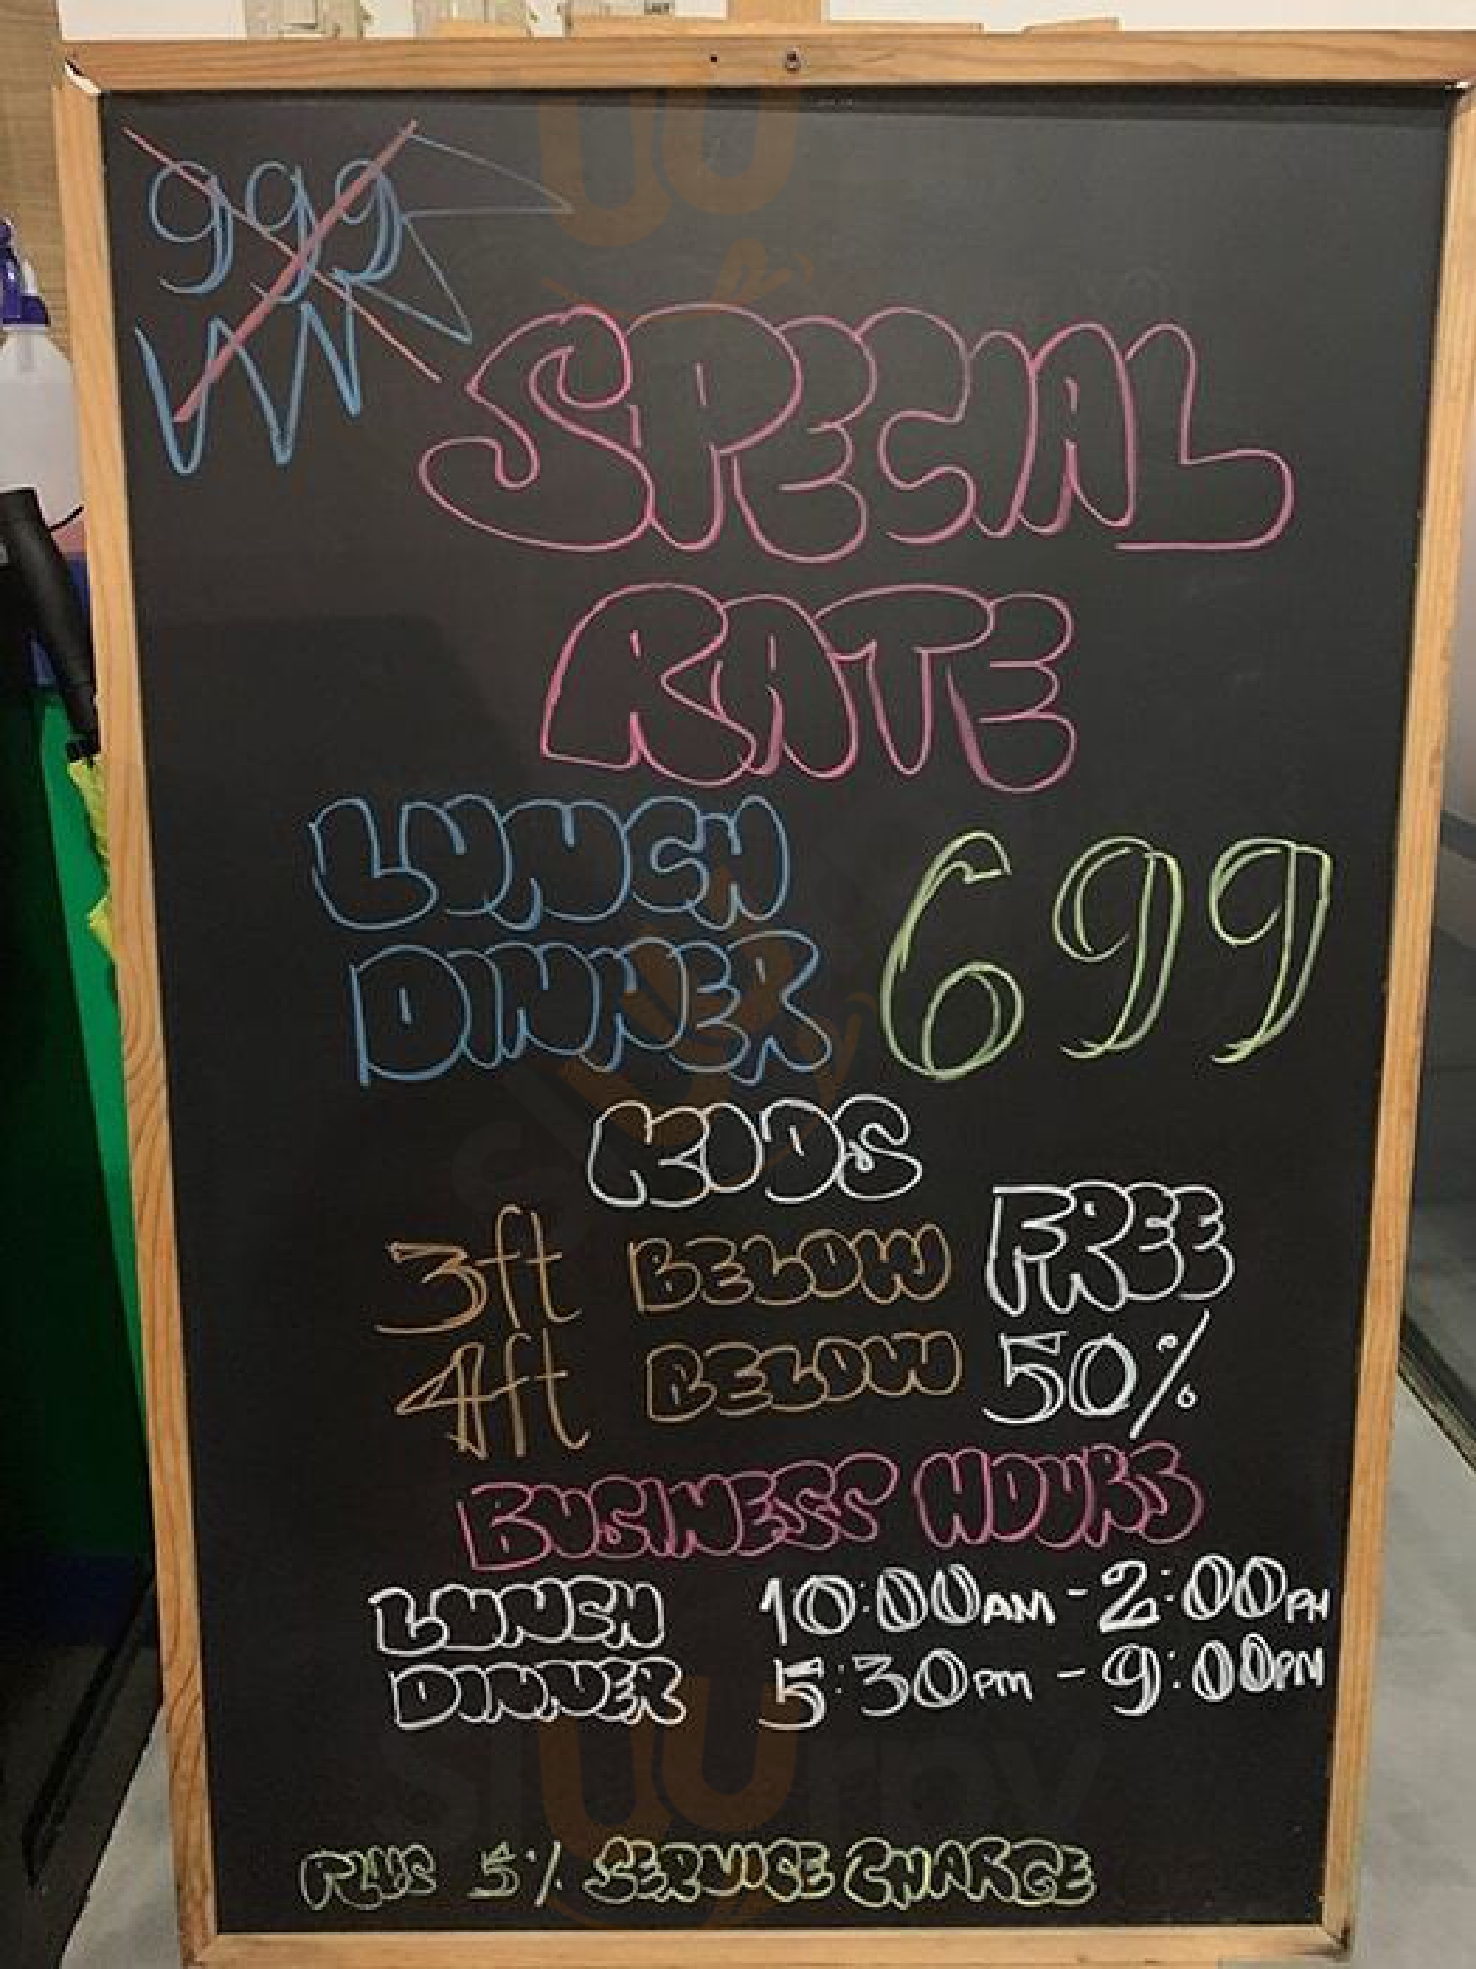 999
SPECIAL
RATE
LUNCH
DINNER 699
KIDS
3ft BELOW FREE
4ft BELOW 50%
BUSINESS HOURS
LUNCH 10:00AM - 2:00PM
DINNER 5:30PM - 9:00PM
PLUS 5% SERVICE CHARGE